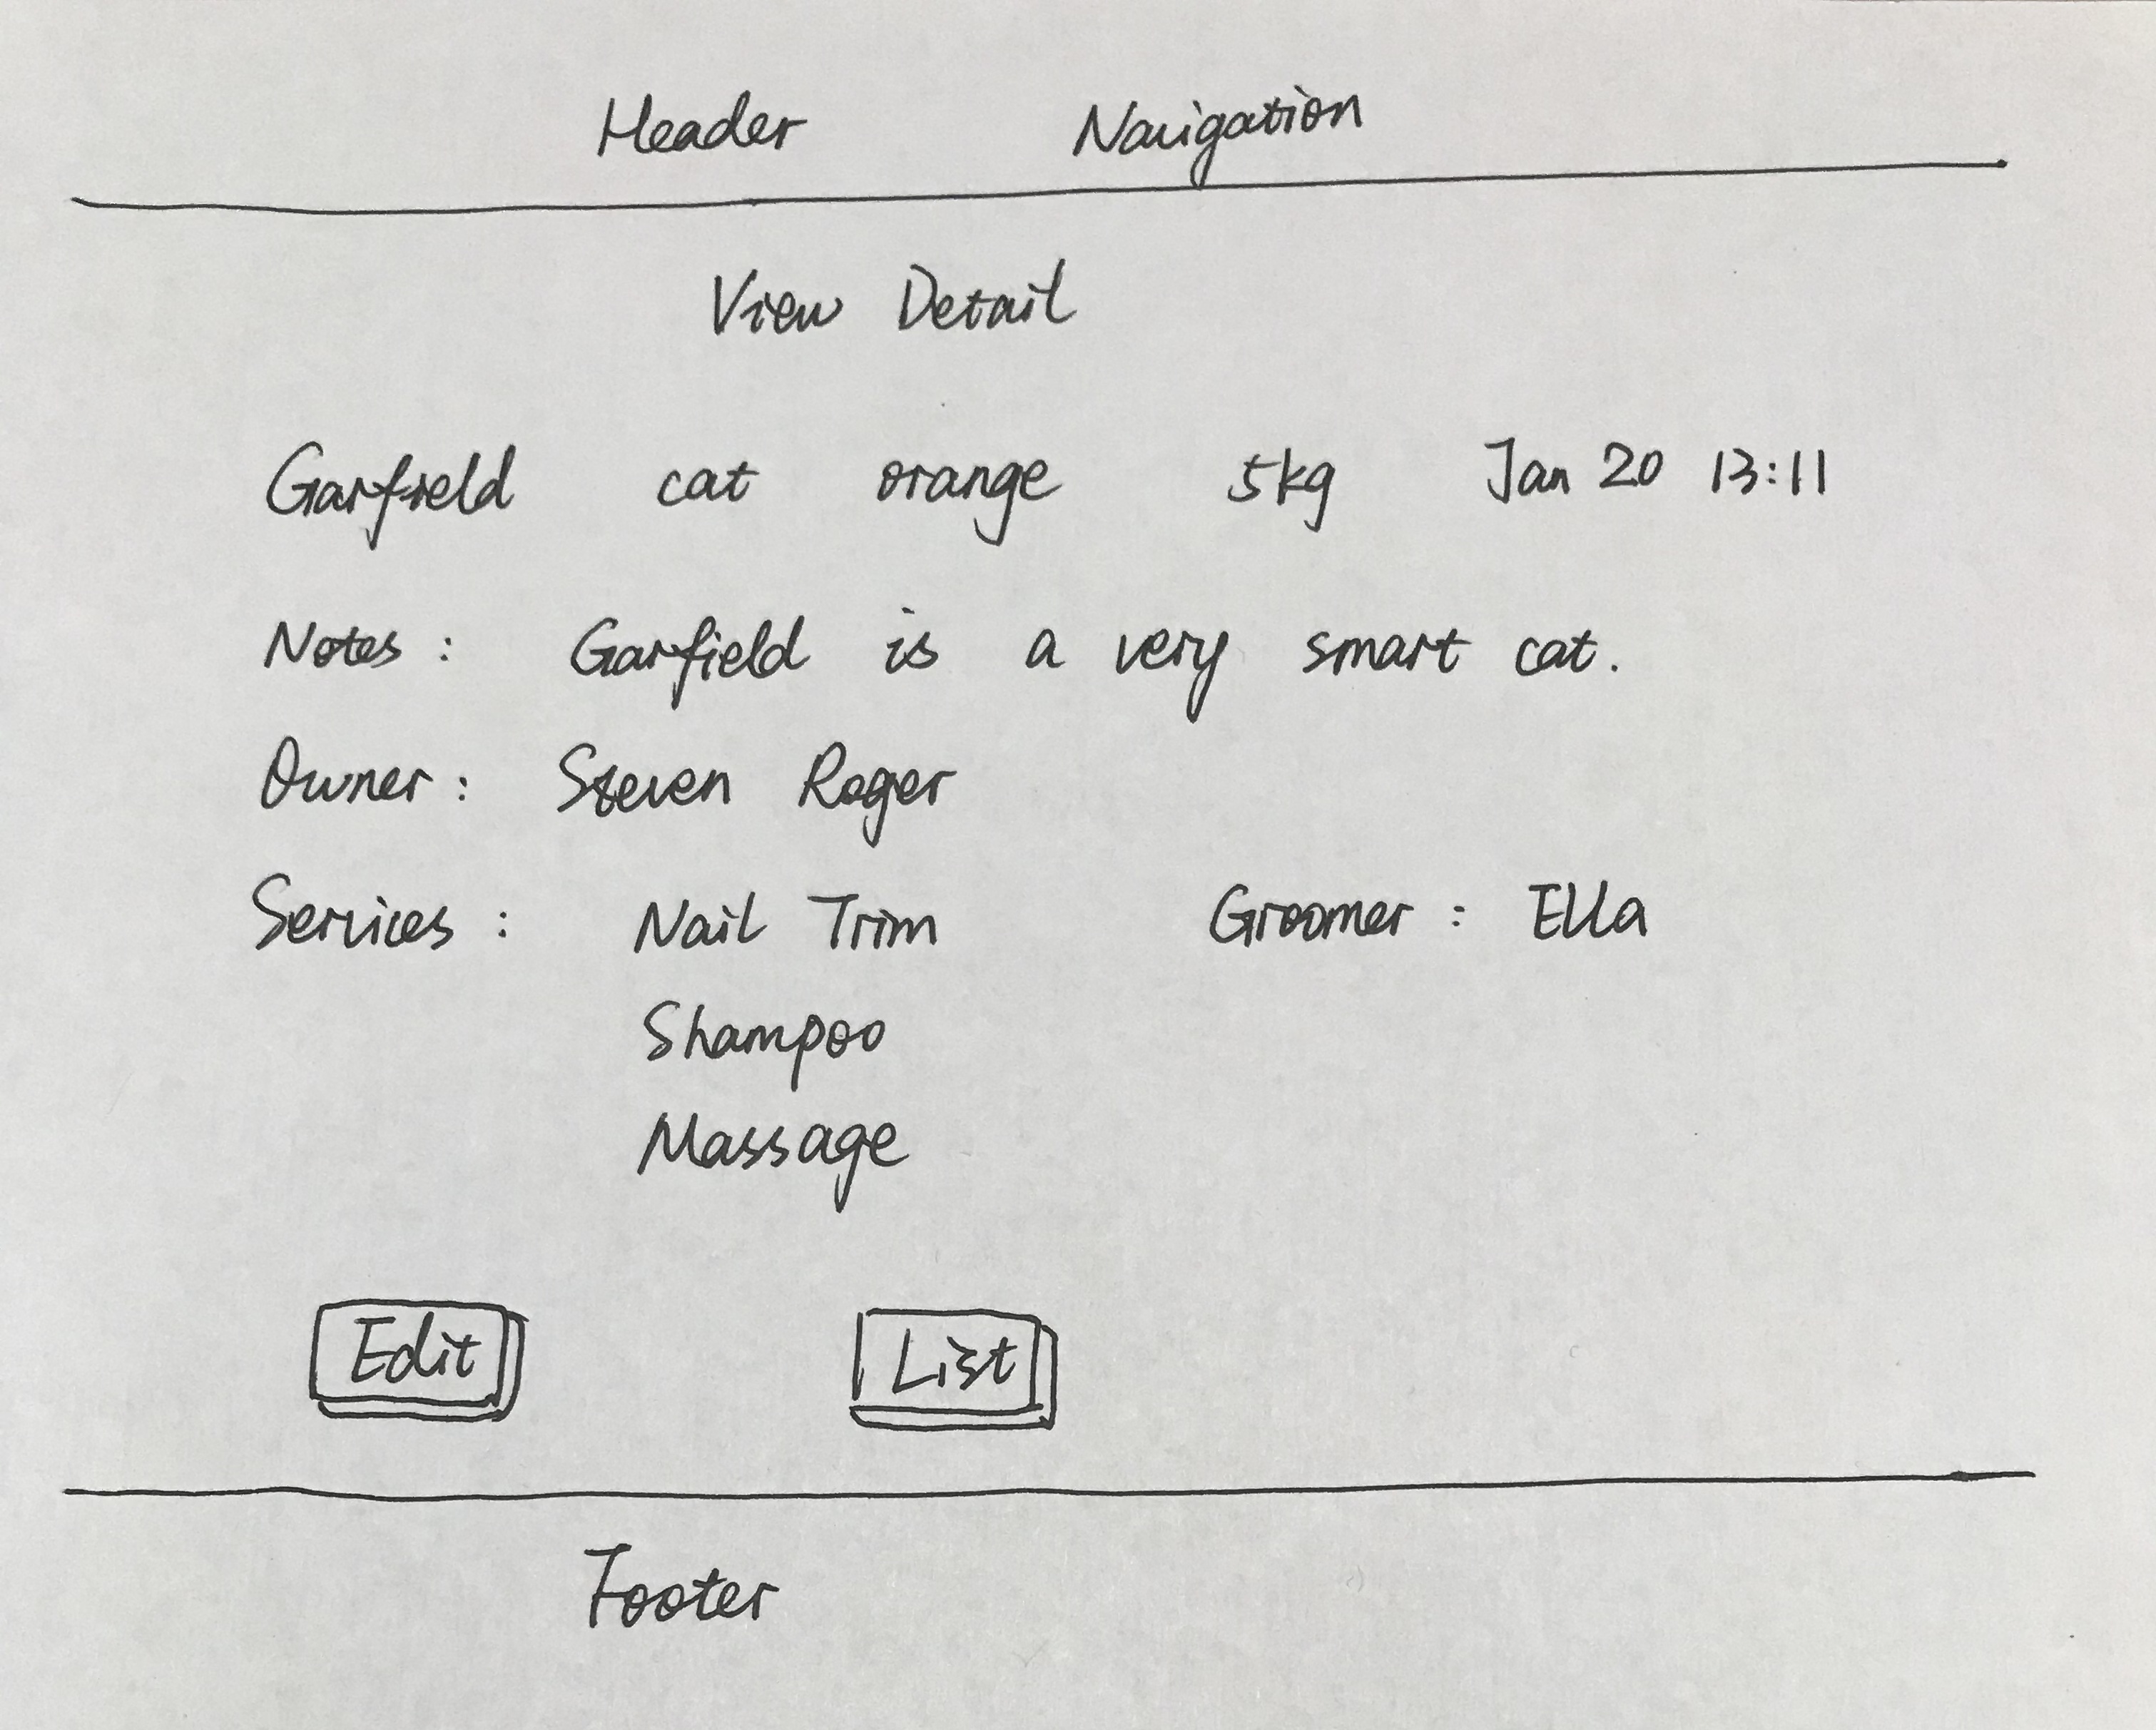 Header Navigation
View Detail
Garfield cat orange 5kg Jan 20 13:11
Notes : Garfield is a very smart cat.
Owner : Steven Roger
Services : Nail Trim Groomer : Ella
Shampoo
Massage
Edit List
Footer